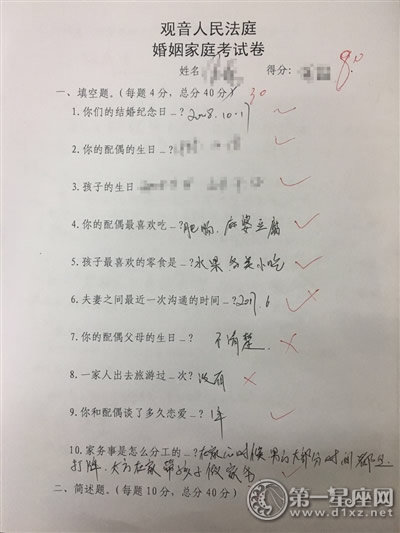 观音人民法庭
婚姻家庭考试卷
姓名 得分: 80
一、填空题。(每题4分，总分40分) 30
1.你们的结婚纪念日…? 2008.10.17
2.你的配偶的生日…?
3.孩子的生日
4.你的配偶最喜欢吃…? 肥肠、麻婆豆腐
5.孩子最喜欢的零食是…? 水果 各类小吃
6.夫妻之间最近一次沟通的时间…? 2017.6
7.你的配偶父母的生日…? 不清楚
8.一家人出去旅游过…次? 没有
9.你和配偶谈了多久恋爱…? 1年
10.家务事是怎么分工的…? 在家的时候 男的大部分时间都是
打牌、女方在家带孩子做家务
二、简述题。(每题10分，总分40分)
第一星座网
www.d1xz.net